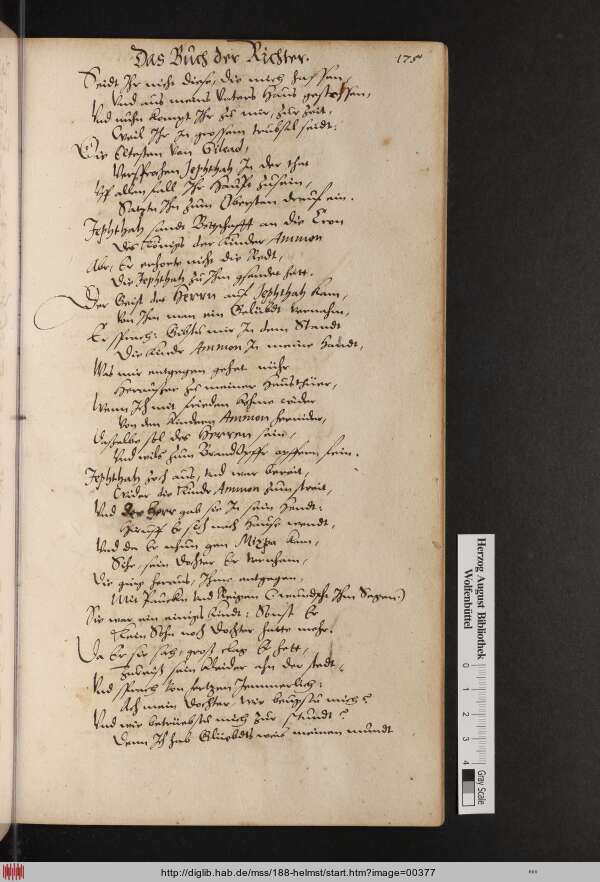 Das Buch der Richter. 175
Seidt Ihr nicht diese, die mich hassen,
Und aus meins Vaters Haus gestossen,
Und nuhn kompt Ihr zu mir, zur Zeit,
Weil Ihr In grossem trubsal seidt:
Die Eltesten von Gilead,
Versprechen Jephthah In der that
Uff allen fall Ihr Haupt zu sein,
Satzten Ihn zum Obersten drauf ein.
Jephthah sandt Botschafft an die
Des Königs der Kinder Ammon
Abr, Er erhorte nicht die Redt,
Die Jephthah zu Ihm gsandet hatt.
Der Geist des Herrn auf Jephthah kam,
Von Ihm man ein Gelübdt vernahm,
Er sprach: Gibstu mir In dem Standt
Die Kinder Ammon In meine Handt,
Was mir entgegen gehet
Heraussen zu meiner Hausthüer,
Wenn Ich mit frieden kohme wider
Von den Kindern Ammon hernider,
Dasselbe sol des Herren sein,
Und wils zum Brandtopffr opffern fein.
Jephthah zoch aus, und war bereit,
Wider die Kinder Ammon zum streit,
Und der Herr gab sie In sein Hendt:
Hirauff Er sich nach Hause wendt,
Und da Er nhun gen Mizpa kam,
Sihe, sein Dochter Er vernham,
Die ging heraus, Ihme entgegen,
Mit Paucken und Reigen
Sie war ein einigs Kindt: Sonst Er
Kein Sohn noch Dochter hatte mehr.
Da Er sie sach, gros clag Er hett,
Zureist sein Kleider ahn der stedt,
Und sprach von hertzen Jemmerlich:
Ach mein Dochter wie beugstu mich?
Und wie betrüebstu mich zur stundt?
Denn Ich hab Glüebdts weis meinen mundt
Herzog August Bibliothek
Wolfenbüttel
0 1 2 3 4
Gray Scale
http://diglib.hab.de/mss/188-helmst/start.htm?image=00377